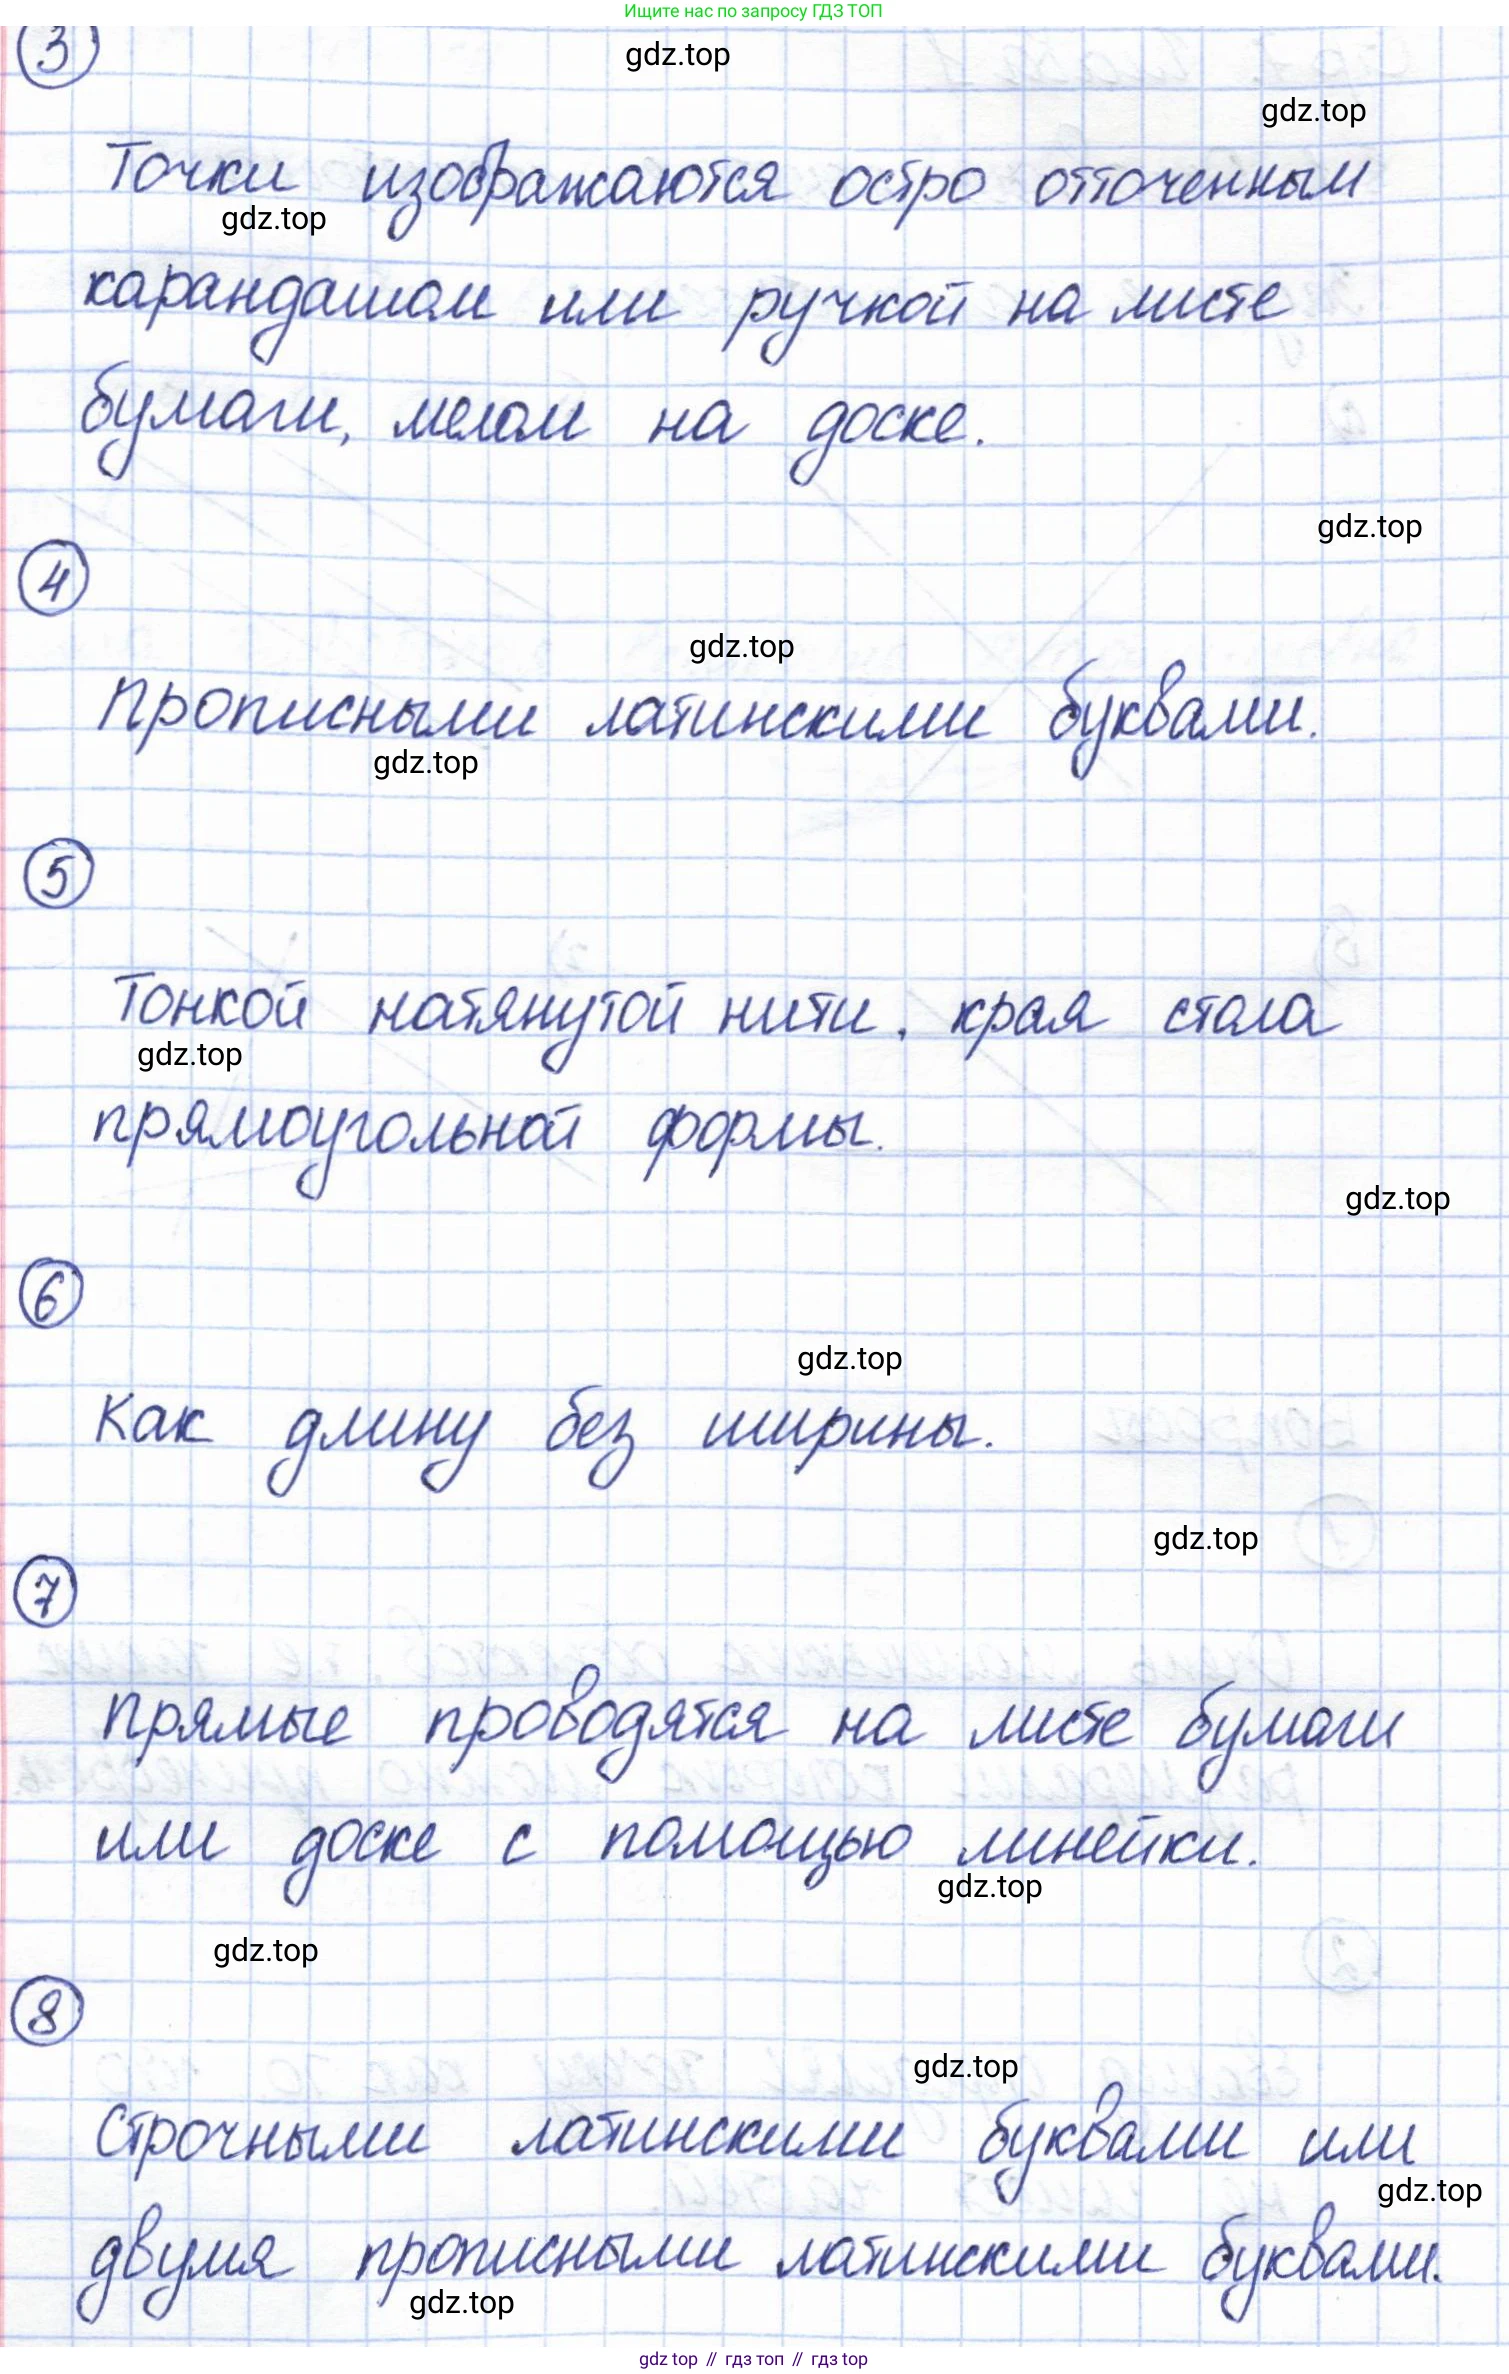 Ищите нас по запросу ГДЗ ТОП
3
gdz.top
gdz.top
Точки изображаются остро отточенным
gdz.top
карандашом или ручкой на листе
бумаги, мелом на доске.
gdz.top
4
gdz.top
Прописными латинскими буквами.
gdz.top
5
Тонкой натянутой нити, края стола
gdz.top
прямоугольной формы.
gdz.top
6
gdz.top
Как длину без ширины.
gdz.top
7
Прямые проводятся на листе бумаги
или доске с помощью линейки.
gdz.top
gdz.top
8
gdz.top
Строчными латинскими буквами или
gdz.top
двумя прописными латинскими буквами.
gdz.top
gdz top // гдз топ // гдз top